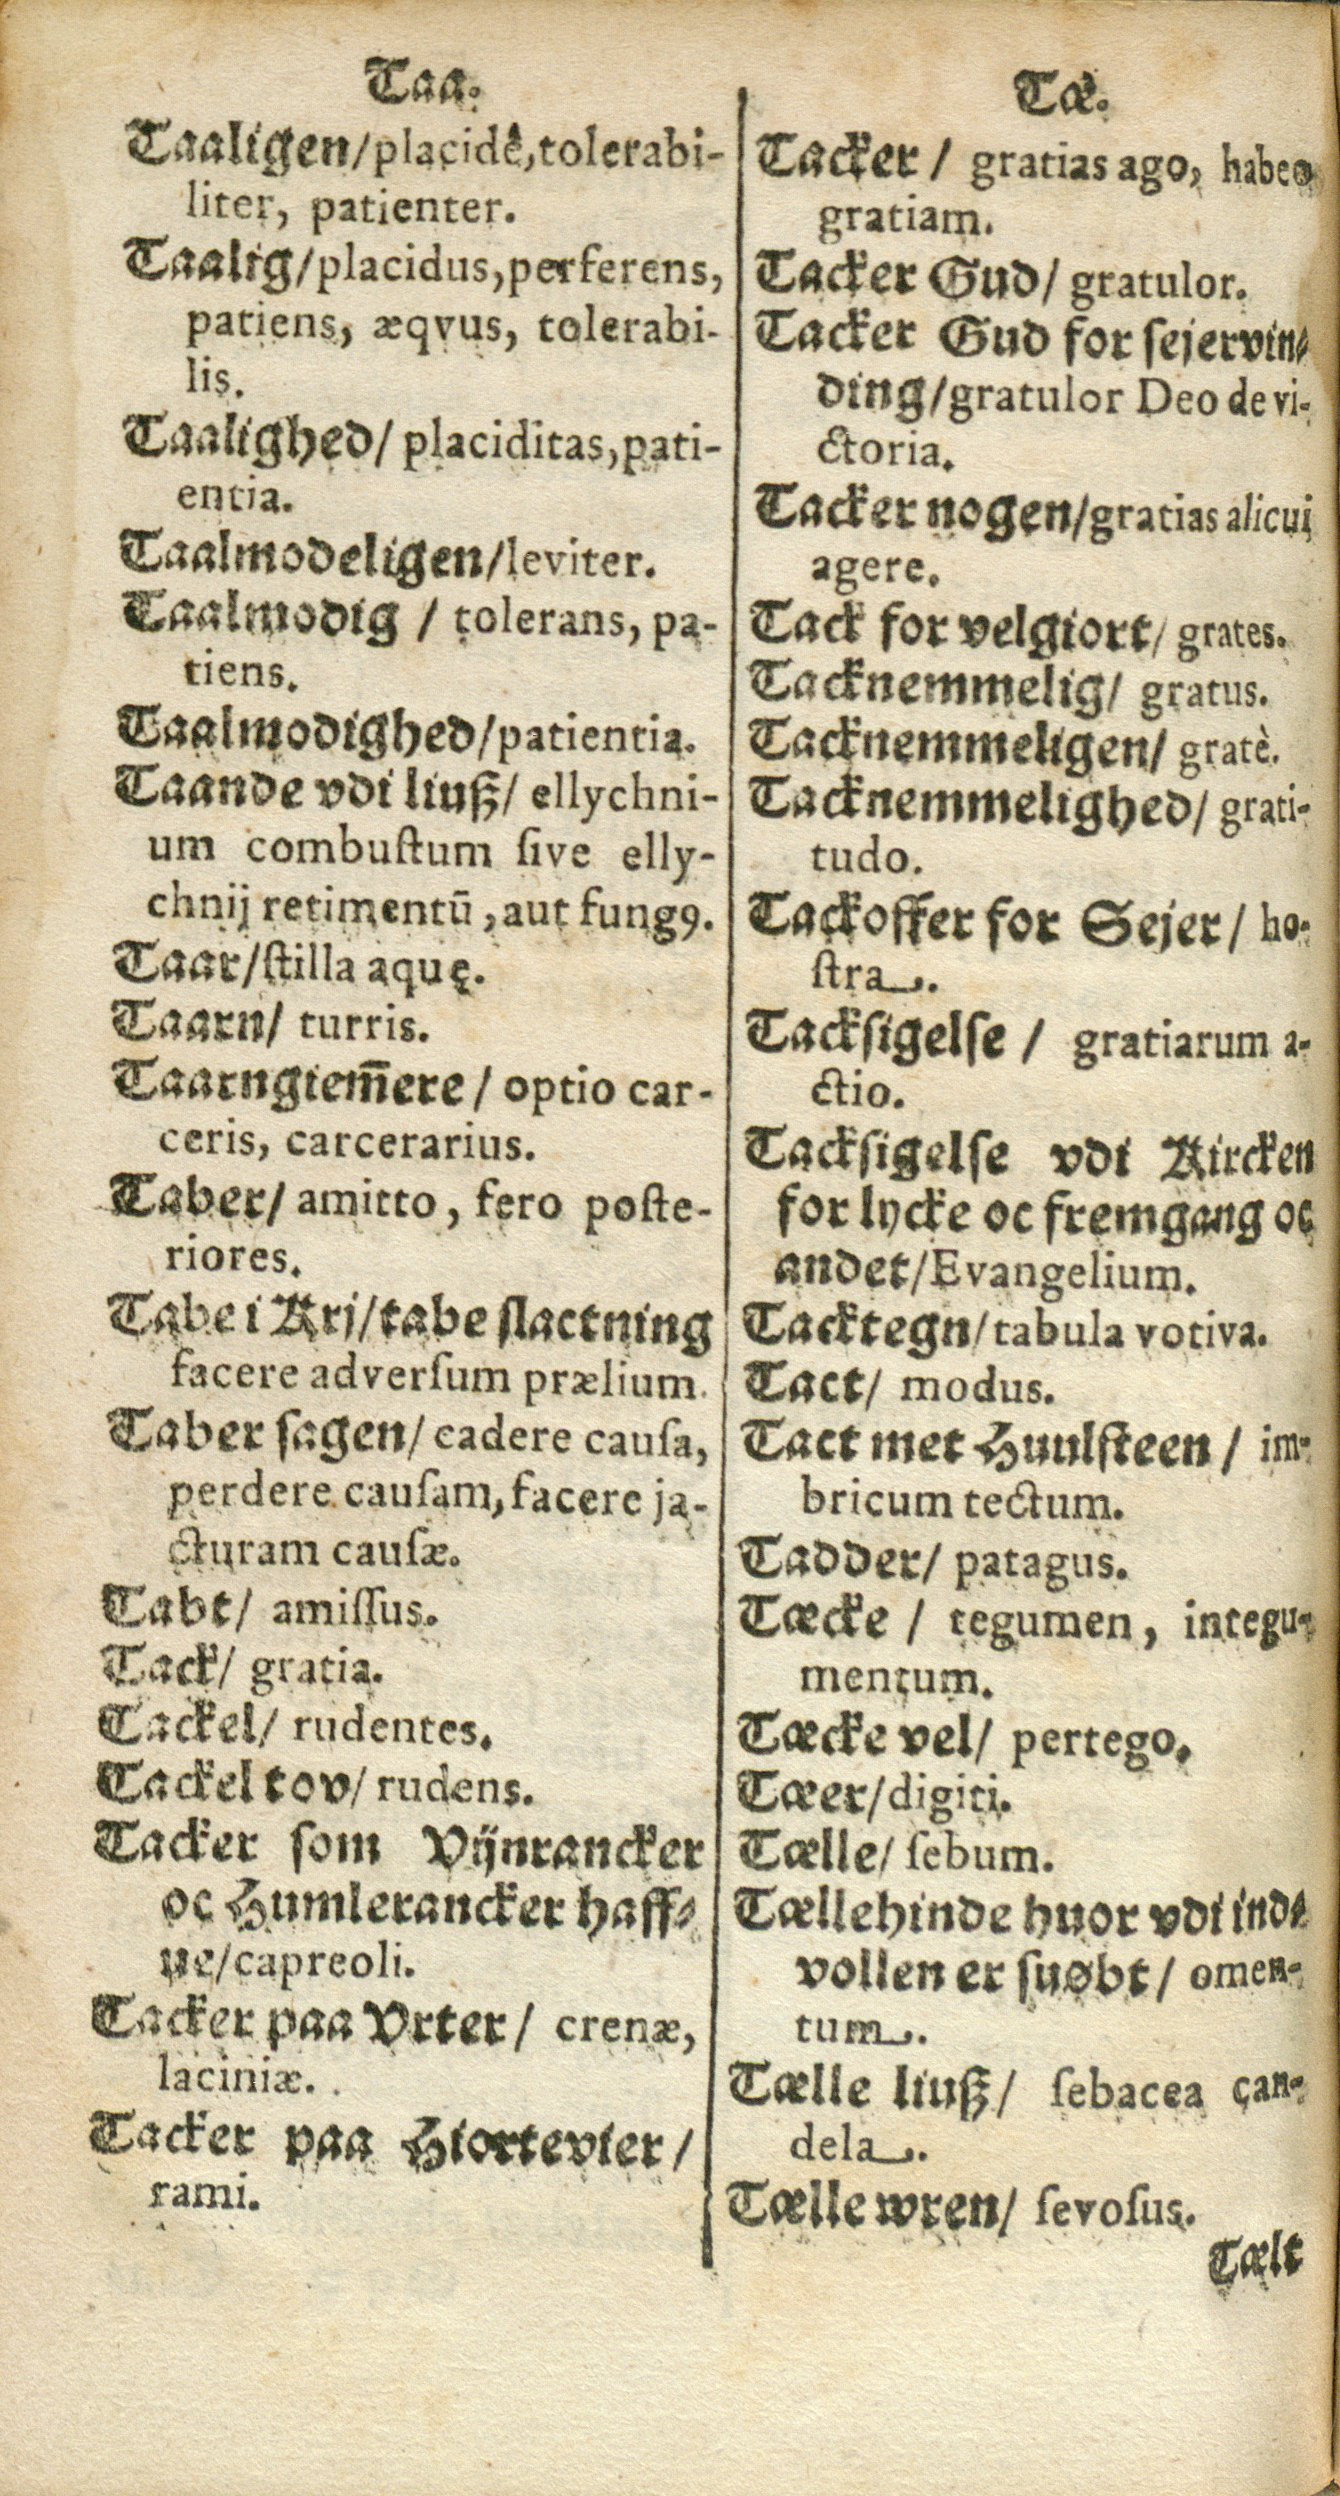 Taa.
Taaligen/placidê,tolerabi-
liter, patienter.
Taalig/placidus,perferens,
patiens, æqvus, tolerabi-
lis.
Taalighed/ placiditas,pati-
entia.
Taalmodeligen/leviter.
Taalmodig / tolerans, pa-
tiens.
Taalmodighed/patientia.
Taande vdi liuß/ ellychni-
um combuſtum ſive elly-
chnij retimentū, aut fungꝰ.
Taar/ſtilla aquę.
Taarn/ turris.
Taarngiem̄ere / optio car-
ceris, carcerarius.
Taber/ amitto, fero poſte-
riores.
Tabe i Krj/tabe ſlactning
facere adverſum prælium.
Taber ſagen/ cadere cauſa,
perdere cauſam, facere ja-
cturam cauſæ.
Tabt/ amiſſus.
Tack/ gratia.
Tackel/ rudentes.
Tackel tov/ rudens.
Tacker ſom Vijnrancker
oc Humlerancker haff⸗
ue/capreoli.
Tacker paa Vrter/ crenæ,
laciniæ.
Tacker paa Hiortevier/
rami.
Tæ.
Tacker / gratias ago, habeo
gratiam.
Tacker Gud/ gratulor.
Tacker Gud for ſejervin⸗
ding/gratulor Deo de vi-
ctoria.
Tacker nogen/gratias alicui
agere.
Tack for velgiort/ grates.
Tacknemmelig/ gratus.
Tacknemmeligen/ gratè.
Tacknemmelighed/ grati-
tudo.
Tackoffer for Sejer/ ho-
ſtra.
Tackſigelſe / gratiarum a-
ctio.
Tackſigelſe vdi Kircken
for lycke oc fremgang oc
andet/Evangelium.
Tacktegn/tabula votiva.
Tact/ modus.
Tact met Huulſteen / im-
bricum tectum.
Tadder/ patagus.
Tæcke / tegumen, integu-
mentum.
Tæcke vel/ pertego.
Tæer/digiti.
Tælle/ ſebum.
Tællehinde huor vdi ind⸗
vollen er ſuøbt/ omen-
tum.
Tælle liuß/ ſebacea can-
dela.
Tælle wren/ ſevoſus.
Tælt